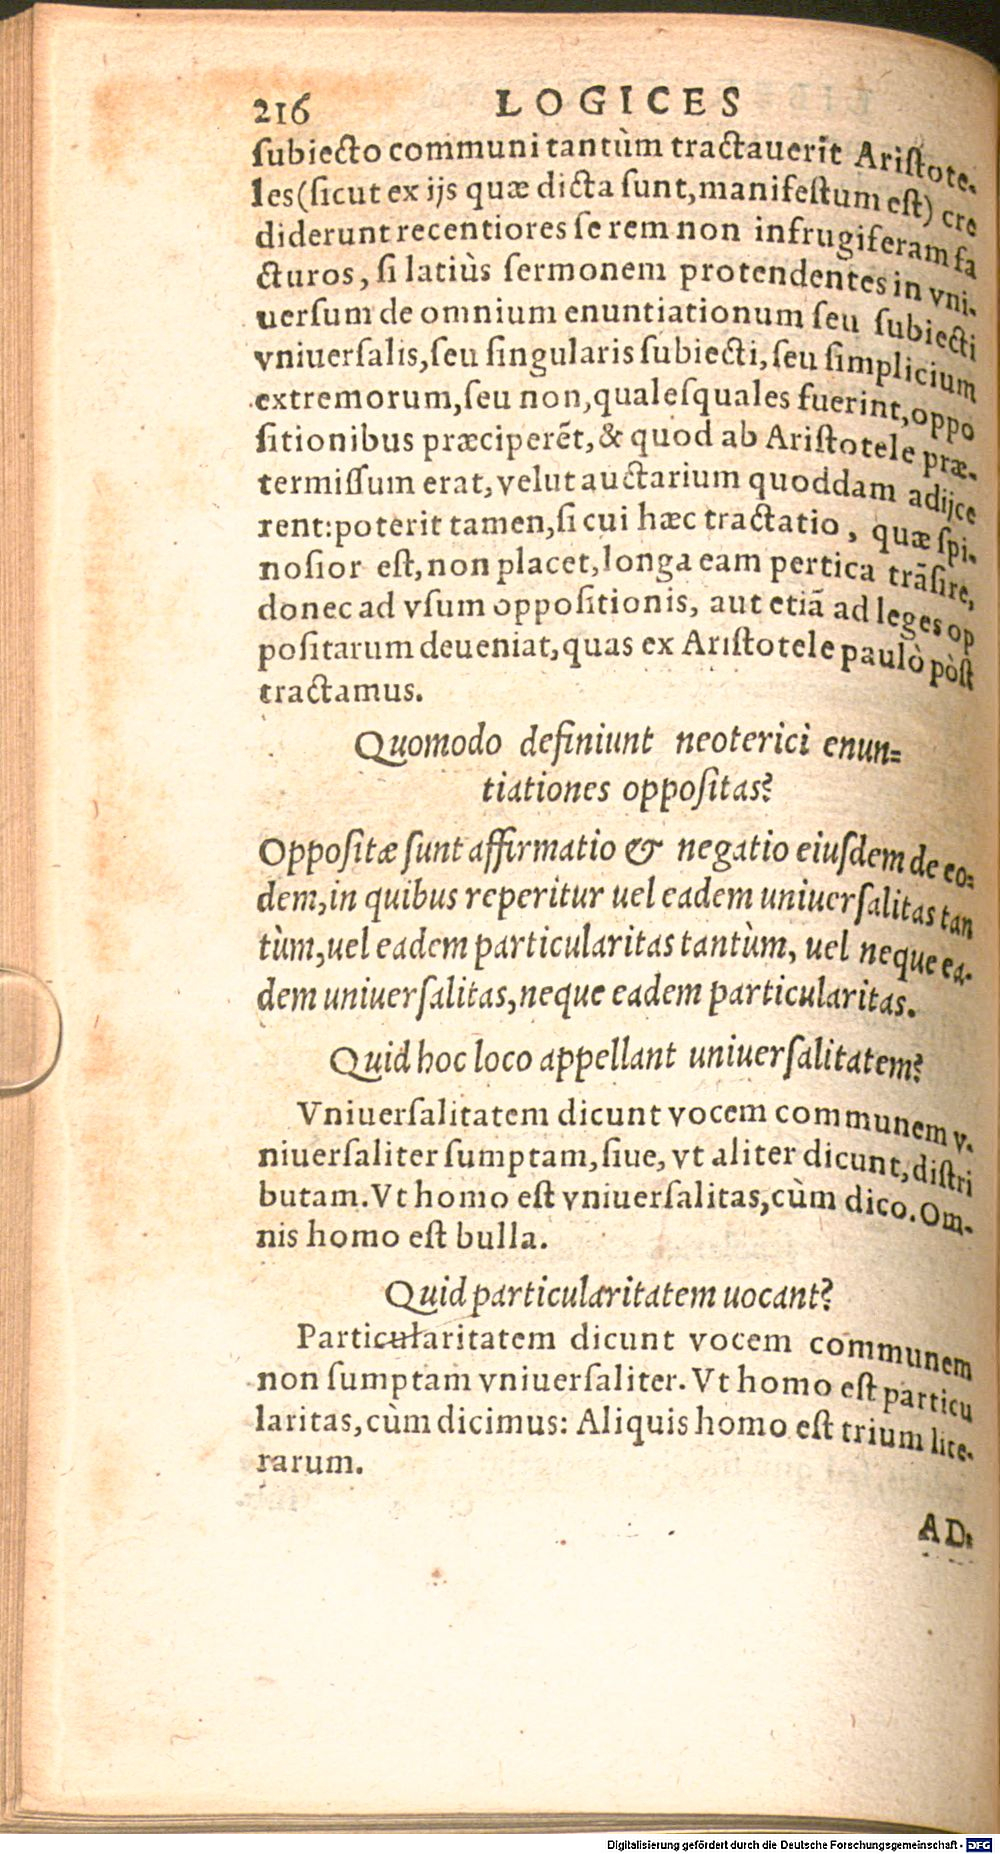 216 LOGICES
ſubiecto communi tantùm tractauerit Ariſtote-
les(ſicut ex ijs quæ dicta ſunt,manifeſtum eſt) cre
diderunt recentiores ſe rem non infrugiferam fa
cturos, ſi latiùs ſermonem protendentes in vni-
uerſum de omnium enuntiationum ſeu ſubiecti
vniuerſalis,ſeu ſingularis ſubiecti,ſeu ſimplicium
extremorum,ſeu non,qualeſquales fuerint,oppo
ſitionibus præciperẽt,& quod ab Ariſtotele præ-
termiſſum erat,velut auctarium quoddam adijce
rent:poterit tamen,ſi cui hæc tractatio, quæ ſpi-
noſior eſt,non placet,longa eam pertica trãſire,
donec ad vſum oppoſitionis, aut etiã ad leges op
poſitarum deueniat,quas ex Ariſtotele paulò pòſt
tractamus.
Quomodo definiunt neoterici enun=
tiationes oppoſitas?
Oppoſitæ ſunt affirmatio & negatio eiuſdem de eo=
dem,in quibus reperitur uel eadem uniuerſalitas tan
tùm,uel eadem particularitas tantùm, uel neque ea-
dem uniuerſalitas,neque eadem particularitas.
Quid hoc loco appellant uniuerſalitatem?
Vniuerſalitatem dicunt vocem communem v-
niuerſaliter ſumptam,ſiue, vt aliter dicunt,diſtri
butam.Vt homo eſt vniuerſalitas,cùm dico.Om-
nis homo eſt bulla.
Quid particularitatem uocant?
Particularitatem dicunt vocem communem
non ſumptam vniuerſaliter. Vt homo eſt particu
laritas,cùm dicimus: Aliquis homo eſt trium lite-
rarum.
AD-
Digitalisierung gefördert durch die Deutsche Forschungsgemeinschaft - DFG